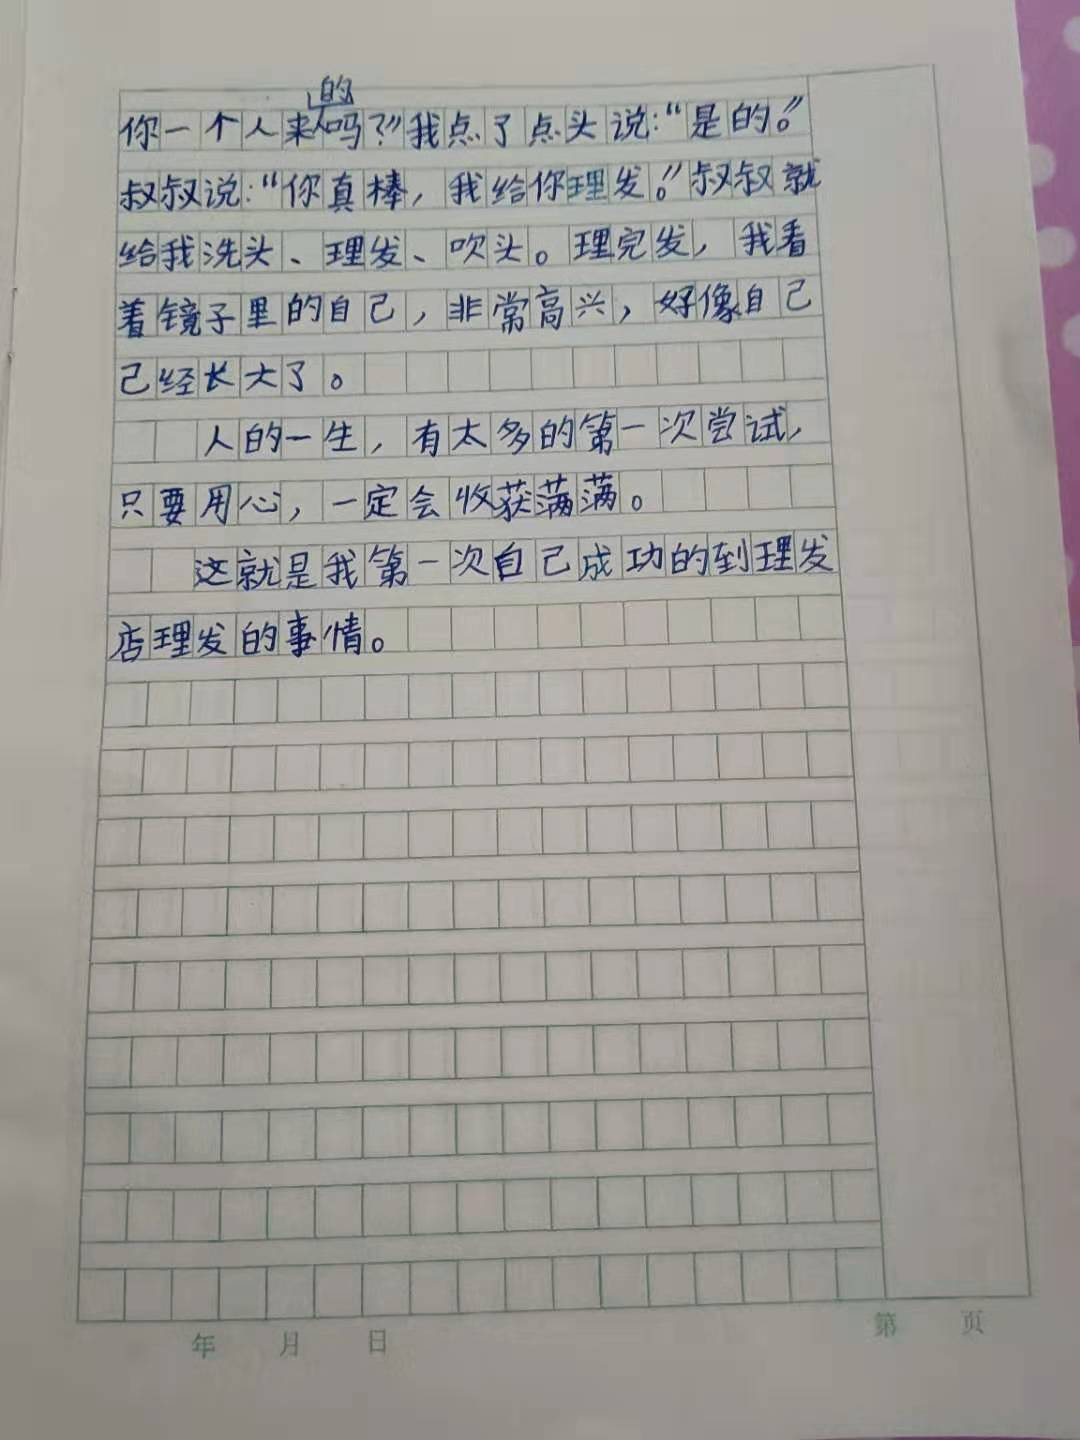 你一个人来的吗？”我点了点头说：“是的。”
叔叔说：“你真棒，我给你理发。”叔叔就
给我洗头、理发、吹头。理完发，我看
着镜子里的自己，非常高兴，好像自己
己经长大了。
人的一生，有太多的第一次尝试，
只要用心，一定会收获满满。
这就是我第一次自己成功的到理发
店理发的事情。
年 月 日
第 页